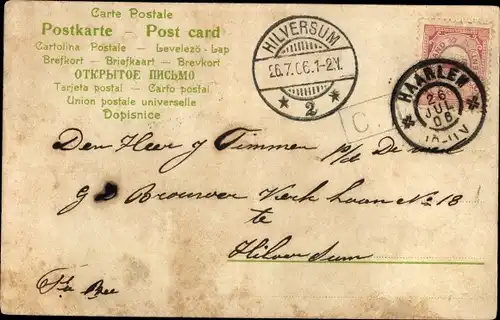 Carte Postale
Postkarte - Post card
Cartolina Postale - Levelező-Lap
Brefkort - Briefkaart - Brevkort
ОТКРЫТОЕ ПИСЬМО
Tarjeta postal - Carto postal
Union postale universelle
Dopisnice
HILVERSUM
26.7.06.1-2N.
2
HAARLEM
26
JUL
06
Den Heer J Timmer p/a De
G D Brouwer Kerk laan No 18
te
Hilversum